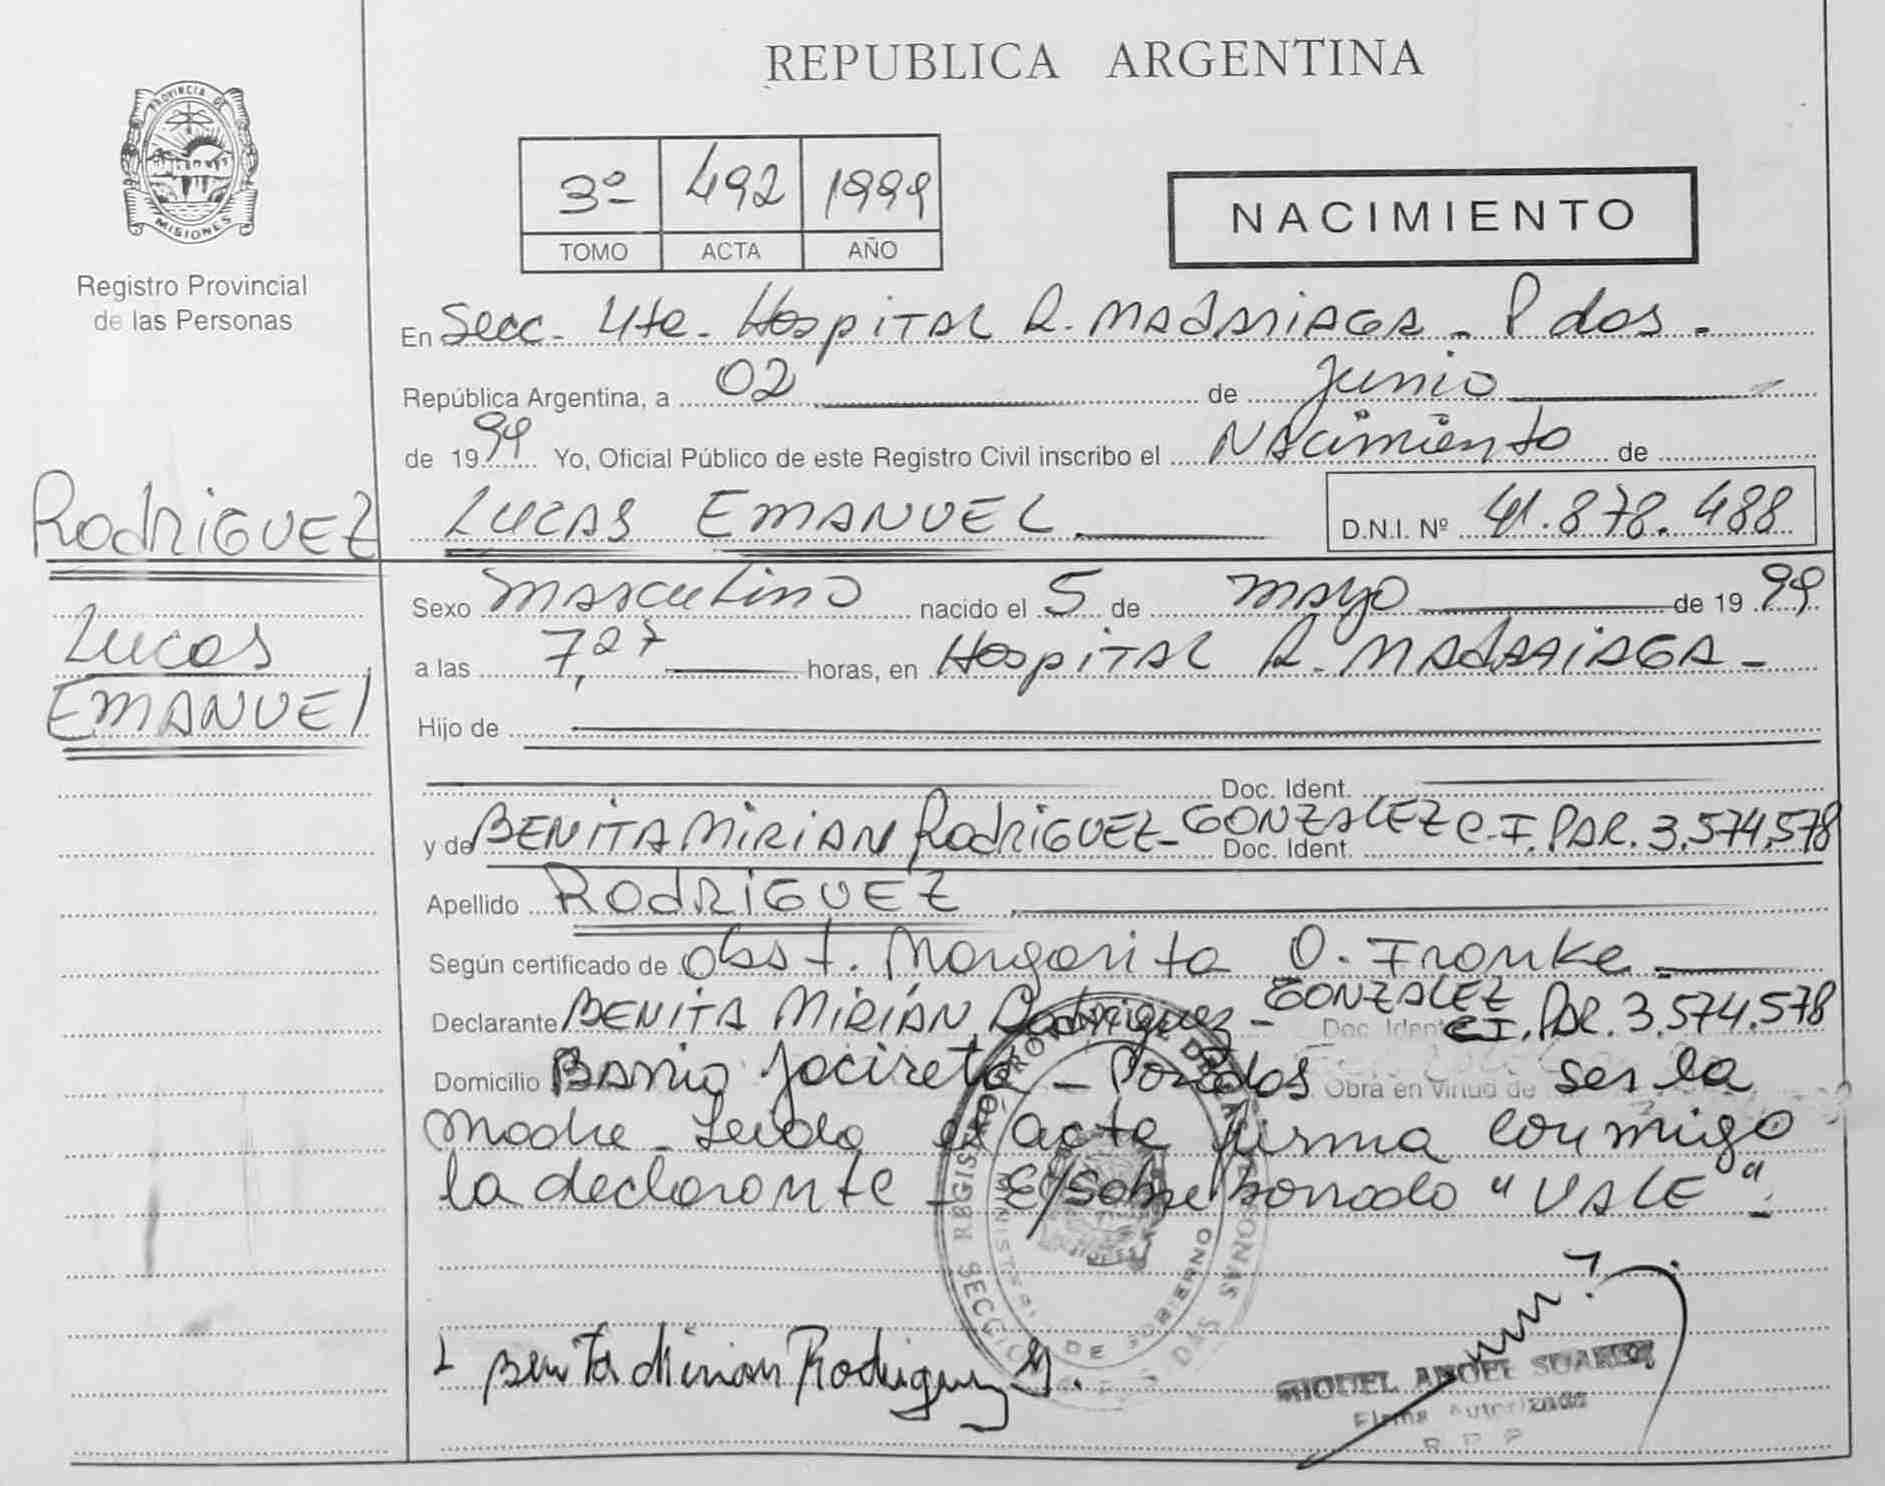 REPUBLICA ARGENTINA
PROVINCIA DE
MISIONES
Registro Provincial
de las Personas
3º 492 1999
TOMO ACTA AÑO
NACIMIENTO
En Secc. 4ta. Hospital R. MADARIAGA - P dos.
República Argentina, a 02 de Junio
de 1999 Yo, Oficial Público de este Registro Civil inscribo el Nacimiento de
RODRIGUEZ
LUCAS EMANUEL D.N.I. Nº 41.878.488
Lucas
EMANUEL
Sexo masculino nacido el 5 de mayo de 1999
a las 7,27 horas, en Hospital R. MADARIAGA -
Hijo de
Doc. Ident.
y de BENITA MIRIAN RODRIGUEZ - GONZALEZ Doc. Ident. C.I. PAR. 3.574.578
Apellido RODRIGUEZ
Según certificado de Obst. Margarita O. Franke
Declarante BENITA MIRIÁN Rodriguez - GONZALEZ Doc. Ident. CI. PAR. 3.574.578
Domicilio Barrio Yacireta - Posadas Obra en virtud de ser la
madre - Leida el acta firma conmigo
la declarante - E/sobre borrado "VALE" -
REGISTRO PROVINCIAL DE LAS PERSONAS
MINISTERIO DE GOBIERNO
SECCIÓN
Benita Mirian Rodriguez G.
MIGUEL ANGEL SUAREZ
Firma Autorizada
R P P